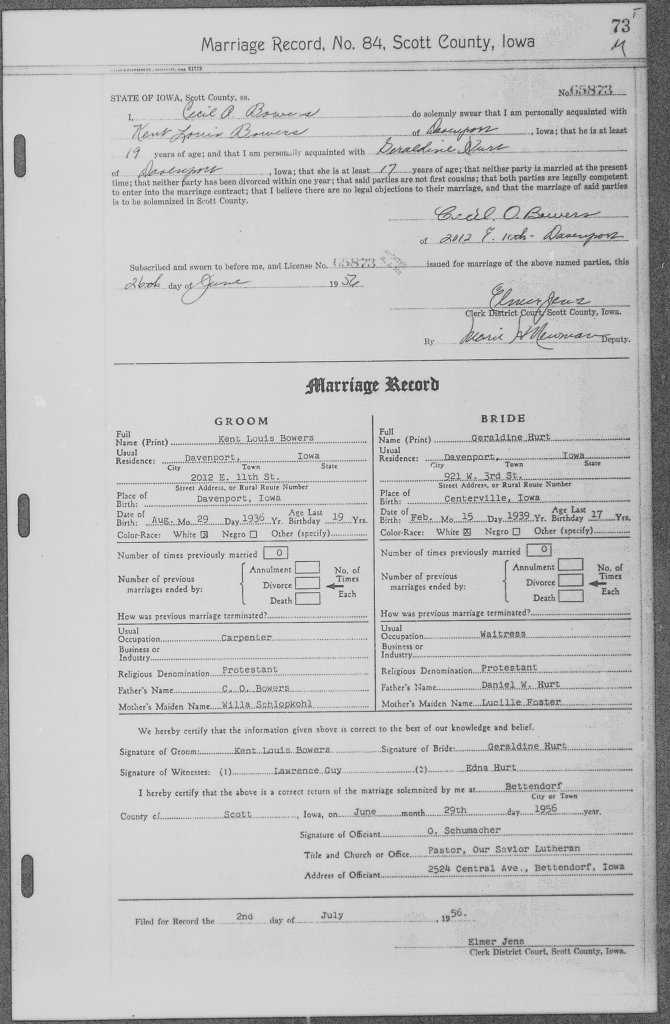 73
M
Marriage Record, No. 84, Scott County, Iowa
No. 65873
STATE OF IOWA, Scott County, ss.
I, Cecil O. Bowers do solemnly swear that I am personally acquainted with
Kent Louis Bowers of Davenport, Iowa; that he is at least
19 years of age; and that I am personally acquainted with Geraldine Hurt
of Davenport, Iowa; that she is at least 17 years of age; that neither party is married at the present
time; that neither party has been divorced within one year; that said parties are not first cousins; that both parties are legally competent
to enter into the marriage contract; that I believe there are no legal objections to their marriage, and that the marriage of said parties
is to be solemnized in Scott County.
Cecil O. Bowers
of 2012 E. 11th - Davenport
Subscribed and sworn to before me, and License No. 65873 issued for marriage of the above named parties, this
26th day of June 1956
Elmer Jens
Clerk District Court, Scott County, Iowa.
By Marie H Newman Deputy.
Marriage Record
GROOM
Full
Name (Print) Kent Louis Bowers
Usual
Residence: Davenport, Iowa
City Town State
2012 E. 11th St.
Street Address, or Rural Route Number
Place of
Birth: Davenport, Iowa
Date of
Birth: Aug. Mo. 29 Day 1936 Yr. Age Last Birthday 19 Yrs.
Color-Race: White ☒ Negro ☐ Other (specify)
Number of times previously married 0
Number of previous
marriages ended by:
Annulment
Divorce
Death
No. of
Times
Each
How was previous marriage terminated?
Usual
Occupation Carpenter
Business or
Industry
Religious Denomination Protestant
Father's Name C. O. Bowers
Mother's Maiden Name Willa Schlopkohl
BRIDE
Full
Name (Print) Geraldine Hurt
Usual
Residence: Davenport, Iowa
City Town State
921 W. 3rd St.
Street Address, or Rural Route Number
Place of
Birth: Centerville, Iowa
Date of
Birth: Feb. Mo. 15 Day 1939 Yr. Age Last Birthday 17 Yrs.
Color-Race: White ☒ Negro ☐ Other (specify)
Number of times previously married 0
Number of previous
marriages ended by:
Annulment
Divorce
Death
No. of
Times
Each
How was previous marriage terminated?
Usual
Occupation Waitress
Business or
Industry
Religious Denomination Protestant
Father's Name Daniel W. Hurt
Mother's Maiden Name Lucille Foster
We hereby certify that the information given above is correct to the best of our knowledge and belief.
Signature of Groom: Kent Louis Bowers Signature of Bride: Geraldine Hurt
Signature of Witnesses: (1) Lawrence Guy (2) Edna Hurt
I hereby certify that the above is a correct return of the marriage solemnized by me at Bettendorf
City or Town
County of Scott, Iowa, on June month 29th day 1956 year.
Signature of Officiant O. Schumacher
Title and Church or Office Pastor, Our Savior Lutheran
Address of Officiant 2524 Central Ave., Bettendorf, Iowa
Filed for Record the 2nd day of July, 1956.
Elmer Jens
Clerk District Court, Scott County, Iowa.